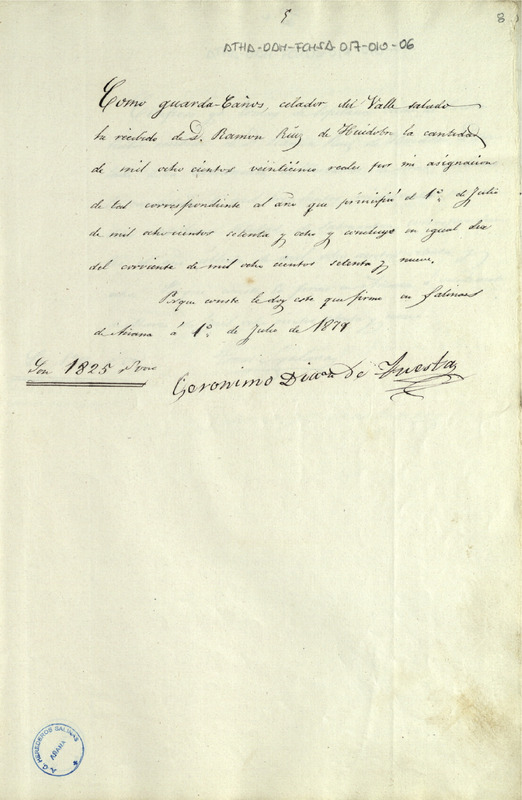 5
8
ATHA-DAH-FCHSA 017-010-06
Como guarda-Caños, celador del Valle salado
he recibido de D. Ramon Ruiz de Huidobro la cantidad
de mil ocho cientos veinticinco reales por mi asignacion
de tal correspondiente al año que principió el 1º. de Julio
de mil ochocientos setenta y ocho y concluyo en igual dia
del corriente de mil ocho cientos setenta y nueve.
Pa que conste le doy este que firmo en Salinas
de Añana á 1º. de Julio de 1879
Son 1825
Geronimo de Puesta
A. G. HEREDEROS SALINAS
AÑANA